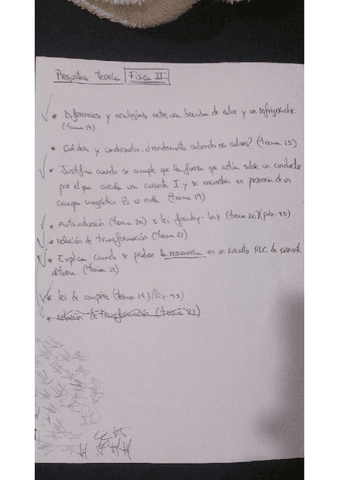 Preguntas Teoría Física II
* Diferencias y analogías entre una bomba de calor y un refrigerador.
(tema 14)
* y condensador. rendimiento sabiendo es calor? (tema 15)
* Justifica cuando se cumple que la fuerza que actúa sobre un conductor
por el que circula una corriente I y se encuentra en presencia de un
campo magnético B es nula. (tema 19)
* Autoinducción (tema 20) e lei faraday-lenz. (tema 20)
* relación de transformación (tema 21)
* Explica cuando se produce la resonancia en un circuito RLC de corriente
alterna. (tema 21)
* lei de ampère (tema 18)
* relación de transformación (tema 21)